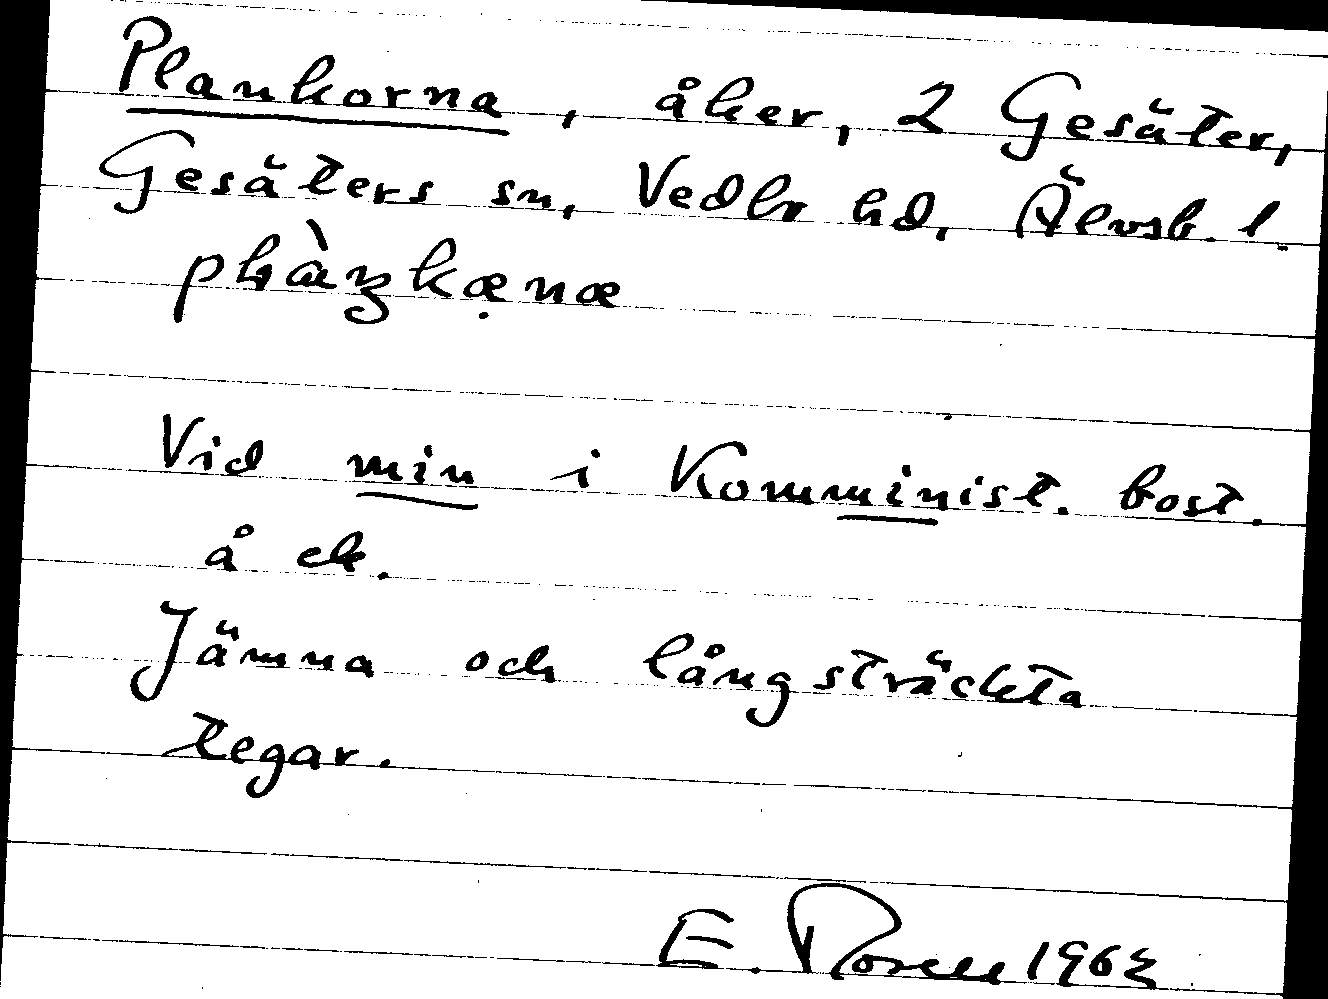 Plankorna, åker, 2 Gesäter,
Gesäters sn, Vedbo hd, Älvsb. l.
Vid min i Komminist. bost.
å ek.
Jämna och långsträckta
tegar.
E. Rosell 196